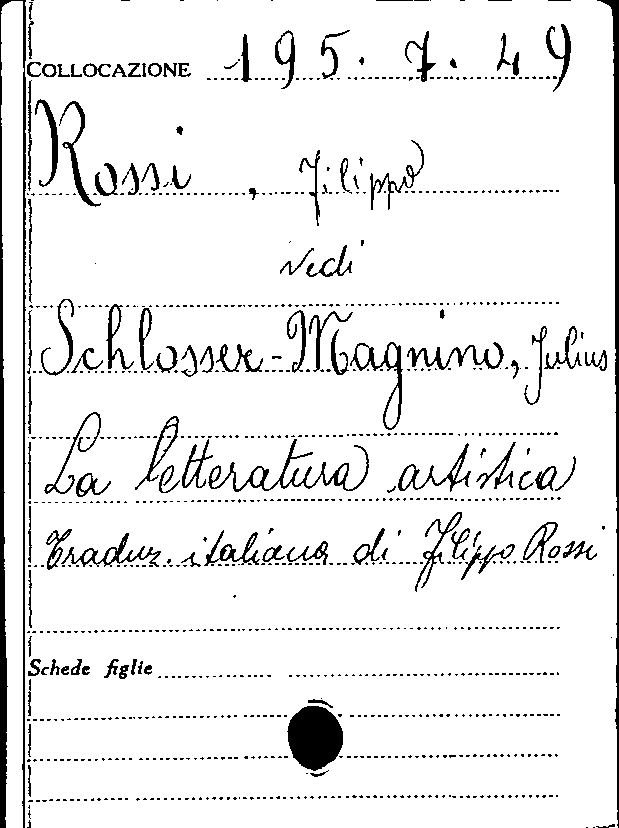 COLLOCAZIONE 195. 7. 49
Rossi, Filippo
vedi
Schlosser-Magnino, Julius
La letteratura artistica
Traduz. italiana di Filippo Rossi
Schede figlie